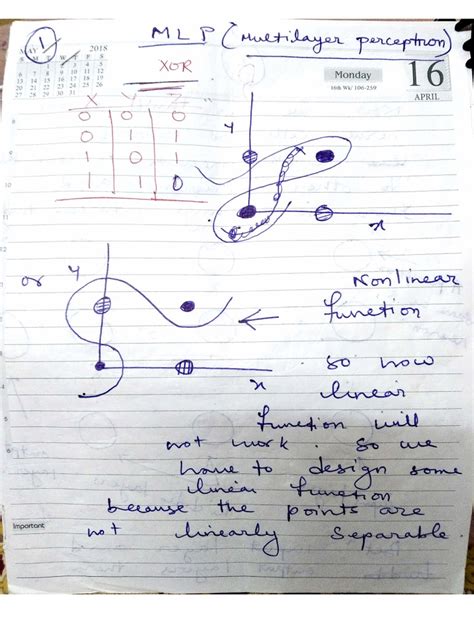 1
MLP (Multilayer perceptron)
MAY 2018
M T W T F S
6 7 8 9 10 11 12
13 14 15 16 17 18 19
20 21 22 23 24 25 26
27 28 29 30 31
XOR
Monday
16th Wk/ 106-259
16
APRIL
X Y Z
0 0 0
0 1 1
1 0 1
1 1 0
y
x
or y
Nonlinear
function
x
so now
linear
function will
not work. So we
have to design some
linear function
because the points are
Important
not linearly separable.